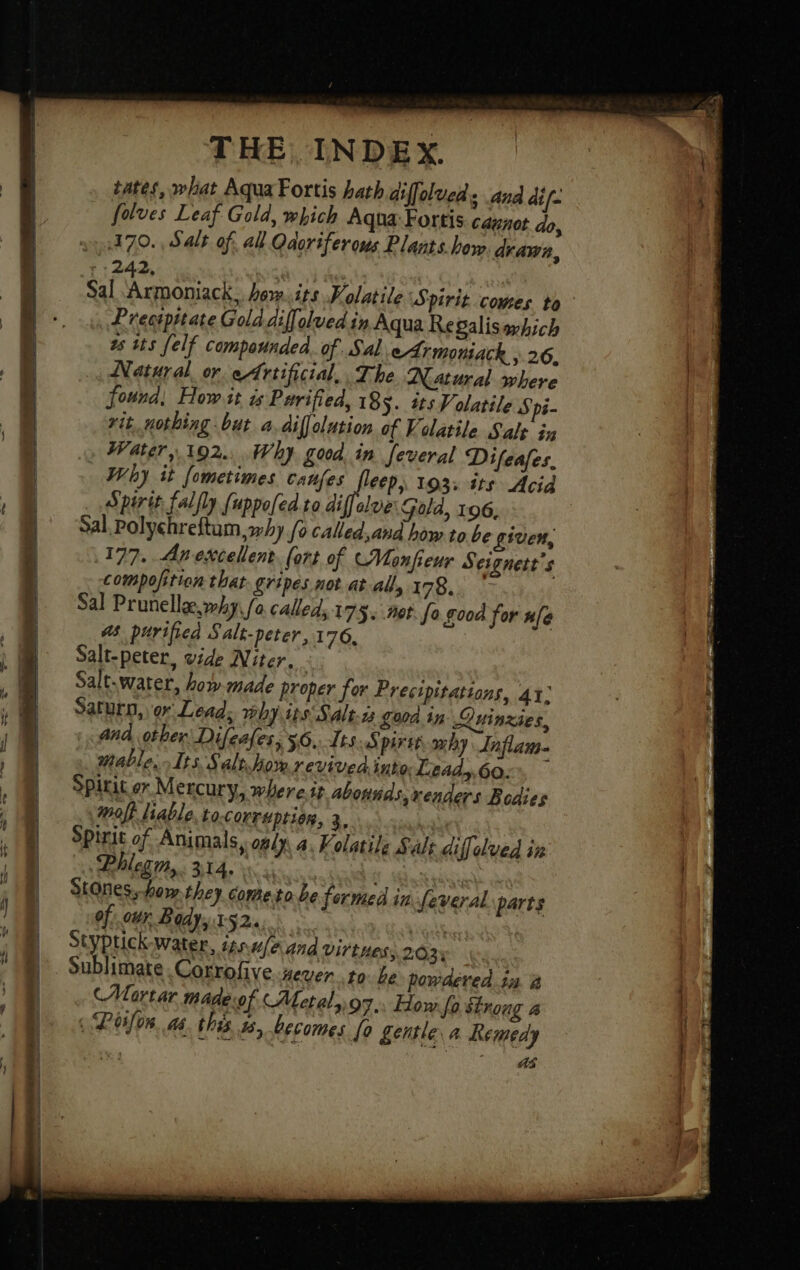 THE INDEX.
tates, what Aqua Fortis hath diſſolved; and diſ-
ſolves Leaf Gold, which Aqua Fortis cannot do,
170. Salt of all Odoriferous Plants how drawn,
242.
Sal Armoniack, how its Volatile Spirit comes to
Precipitate Gold diſſolved in Aqua Regalis which
is its ſelf compounded of Sal Armoniack, 26.
Natural or Artificial, The Natural where
found, How it is Purified, 185. its Volatile Spi-
rit nothing but a diſſolution of Volatile Salt in
Water, 192. Why good in ſeveral Diſeaſes.
Why it ſometimes cauſes ſleep, 193. its Acid
Spirit falſly ſuppoſed to diſſolve Gold, 196.
Sal Polychreſtum, why ſo called, and how to be given,
177. An excellent ſort of Monſieur Seignett's
compoſition that gripes not at all, 178.
Sal Prunellæ, why ſo called, 175. not ſo good for uſe
as purified Salt-peter, 176.
Salt-peter, vide Niter.
Salt-water, how made proper for Precipitations, 41.
Saturn, or Lead, why its Salt is good in Quinzies,
and other Diſeaſes, 56. Its Spirit why Inflam-
mable. Its Salt how revived into Lead, 60.
Spirit or Mercury, where it abounds, renders Bodies
moſt liable to corruption, 3.
Spirit of Animals, only a Volatile Salt diſſolved in
Phlegm, 314.
Stones, how they come to be formed in ſeveral parts
of our Body, 152.
Styptick-water, its uſe and virtues, 203.
Sublimate Corroſive never to be powdered in a
Mortar made of Metal, 97. How ſo strong a
Poiſon as this is, becomes ſo gentle a Remedy
as